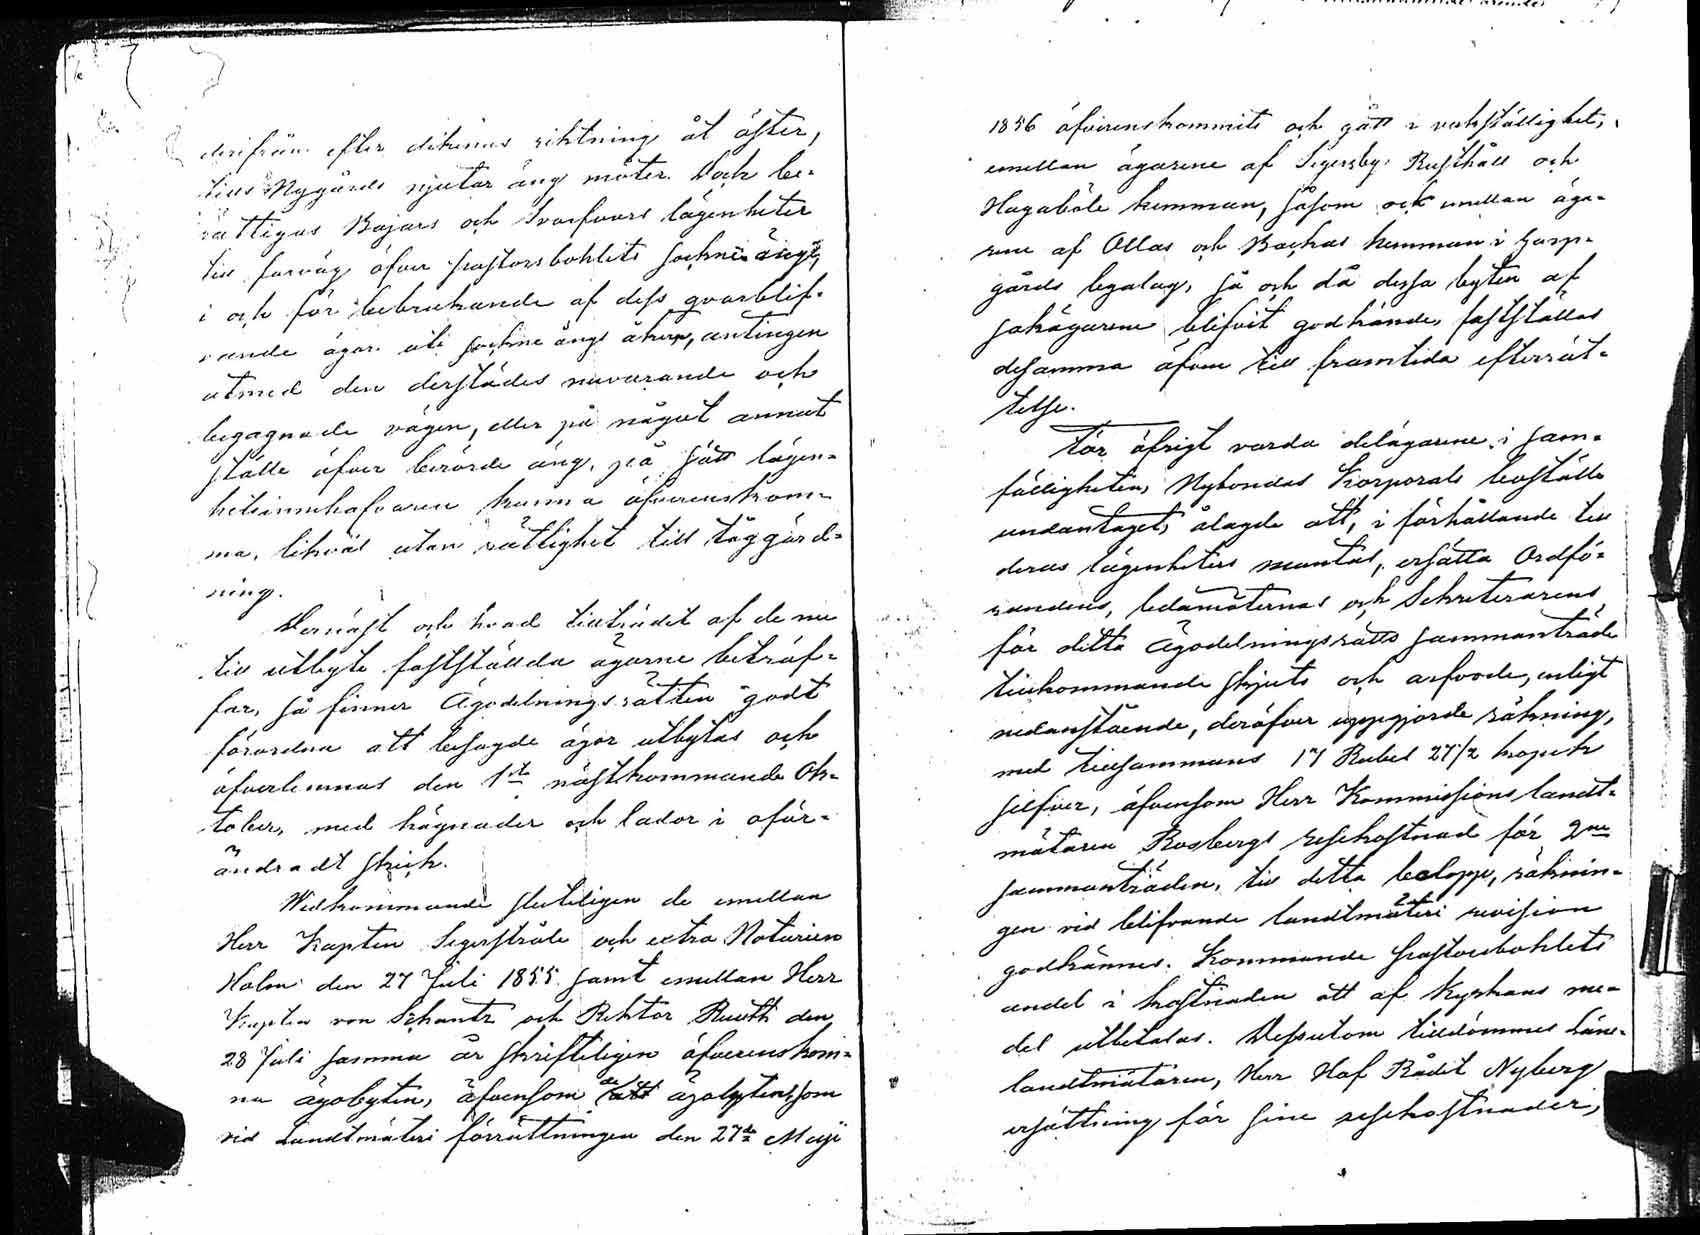 derifrån efter dikenas riktning åt öster,
tills Nygårds njutar äng möter. Dock be-
rättigas Bajars och Svarfvars lägenheter
till farväg öfver prestorsbohlets sockne ängs,
i och för bebrukande af dess qvarblif-
vande ägor uti sockne ängs åkern, antingen
utmed den derstädes nuvarande och
begagnade vägen, eller på något annat
ställe öfver berörde äng, på sätt lägen-
hetsinnehafvarene kunna öfverenskom-
ma, likväl utan rättighet till täggärd-
ning.
Dernäst och hvad tillträdet af de nu
till utbyte fastställda ägorne beträf-
far, så finner Ägodelningsrätten godt
förordna att besagde ägor utbytas och
öfverlemnas den 1sta nästkommande Ok-
tober, med hägnader och lador i oför-
ändradt skick.
Widkommande sluteligen de emellan
Herr Kapten Segerstråle och extra Notarien
Holm den 27 Juli 1855 samt emellan Herr
Kapten von Schantz och Rektor Ruuth den
28 Juli samma år skrifteligen öfverenskom-
na ägobyten, äfvensom de ägobyten, som
vid Landtmäteri förrättningen den 27de Maji
1856 öfverenskommits och gått i verkställighet,
emellan ägarene af Segersby Rusthåll och
Hagaböle hemman, såsom ock emellan äga-
rene af Ollas och Backas hemman i Gasp-
gårds begalag, så och då dessa byten af
sakägarene blifvit godkände, fastställas
desamma äfven till framtida efterrät-
telse.
För öfrigt varda delägarene i sam-
fälligheten, Nybondas Korporals boställe
undantaget, ålagde att, i förhållande till
deras lägenheters mantal, ersätta Ordfö-
randens, ledamöternas och Sekreterarens
för detta Ägodelningsrätts sammanträde
tillkommande skjuts och arfvode, enligt
nedanstående, deröfver uppgjorde räkning,
med tillsammans 17 Rubel 27 1/2 kopek
silfver, äfvensom Herr Kommissions landt-
mätaren Rosbergs resekostnad för 2ne
sammanträden, till detta belopp, räknin-
gen vid blifvande landtmäteri revision
godkännes. Kommande prestorsbohlets
andel i kostnaden att af Kyrkans me-
del utbetalas. Dessutom tilldömmes Läns-
landtmätaren, Herr Hof Rådet Nyberg
ersättning för sine resekostnader,